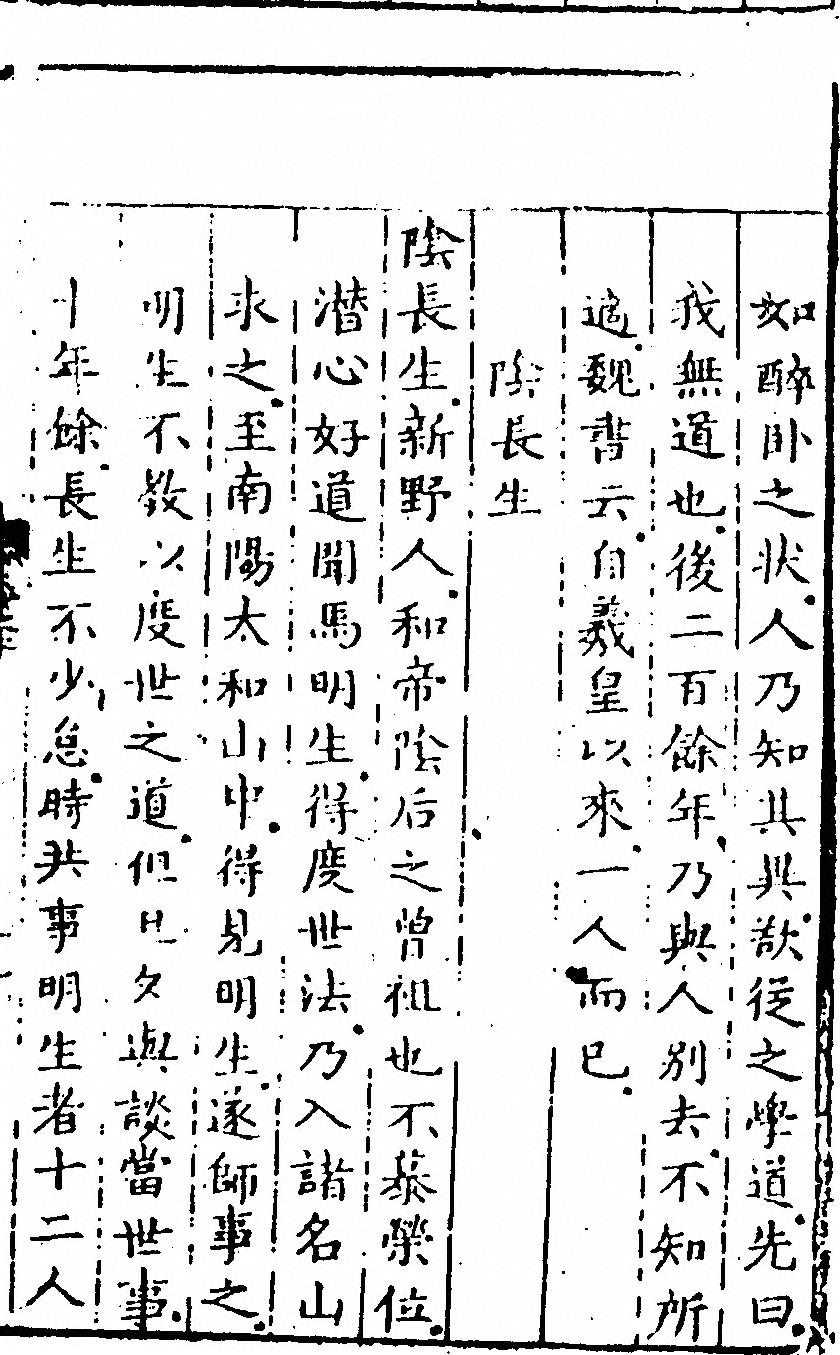 如醉卧之状人乃知其異欲從之學道先曰
我無道也後二百餘年乃與人别去不知所
適魏書云自羲皇以來一人而已
陰長生
陰長生新野人和帝陰后之曾祖也不慕榮位
潜心好道聞馬明生得度世法乃入諸名山
求之至南陽太和山中得見明生遂師事之
明生不教以度世之道但日夕與談當世事
十年餘長生不少怠時共事明生者十二人